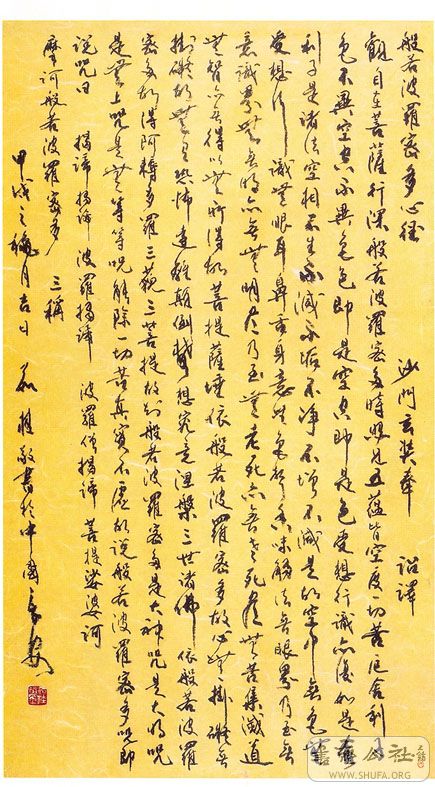 般若波羅蜜多心经 沙門玄奘奉 詔譯
觀自在菩薩行深般若波羅蜜多時照見五蘊皆空度一切苦厄舍利子
色不異空空不異色色即是空空即是色受想行識亦復如是舍
利子是諸法空相不生不滅不垢不净不增不減是故空中無色無
受想行識無眼耳鼻舌身意無色聲香味觸法無眼界乃至無
意識界無無明亦無無明盡乃至無老死亦無老死盡無苦集滅道
無智亦無得以無所得故菩提薩埵依般若波羅蜜多故心無掛礙無
掛礙故無有恐怖遠離顛倒夢想究竟涅槃三世諸佛依般若波羅
蜜多故得阿耨多羅三藐三菩提故知般若波羅蜜多是大神咒是大明咒
是無上咒是無等等咒能除一切苦真實不虛故説般若波羅蜜多咒即
説咒曰 揭諦揭諦 波羅揭諦 波羅僧揭諦 菩提娑婆訶
摩訶般若波羅蜜多 三稱
甲戌之穐月吉日 敬書於中國
書法公社
WWW.SHUFA.ORG